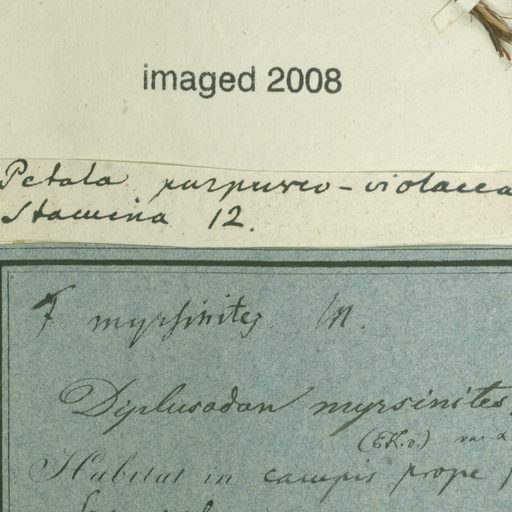 imaged 2008
Petala purpureo-violacea
Stamina 12.
F myrsinites M.
Diplusodon myrsinites
var a
Habitat in campis prope